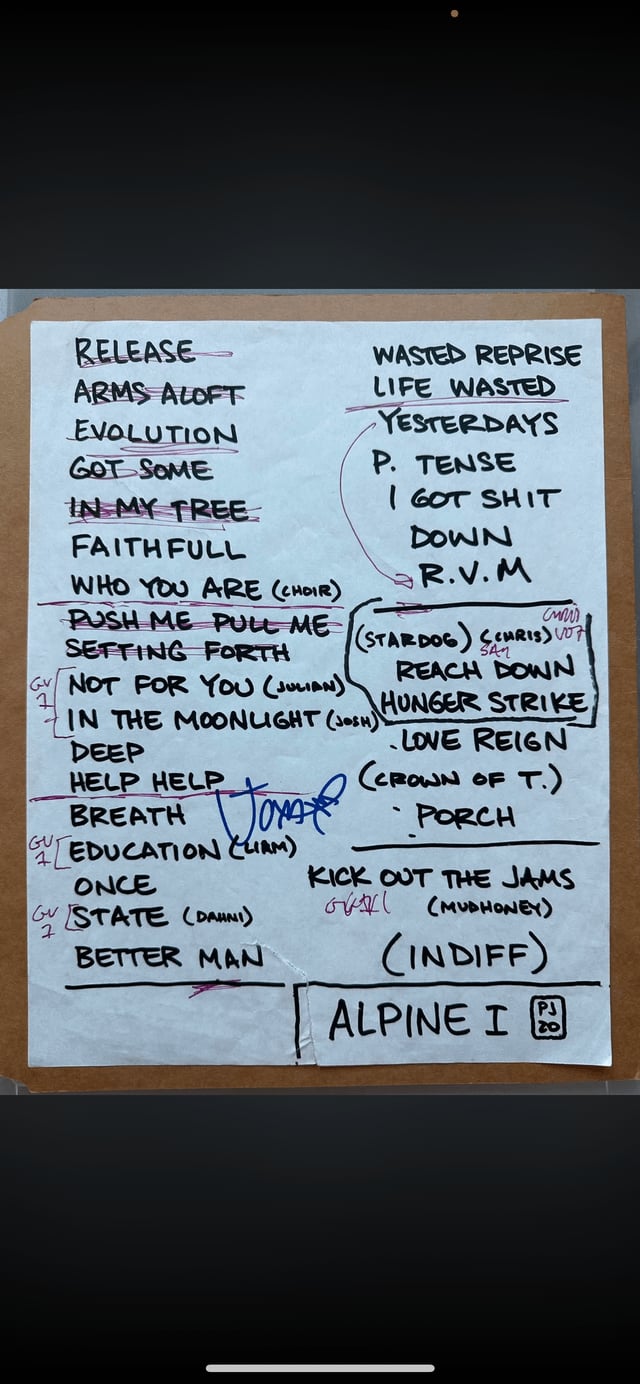 RELEASE
ARMS ALOFT
EVOLUTION
GOT SOME
IN MY TREE
FAITHFULL
WHO YOU ARE (CHOIR)
PUSH ME PULL ME
SETTING FORTH
NOT FOR YOU (JULIAN)
IN THE MOONLIGHT (JOSH)
DEEP
HELP HELP
BREATH
EDUCATION (LIAM)
ONCE
STATE (DAHNI)
BETTER MAN
WASTED REPRISE
LIFE WASTED
YESTERDAYS
P. TENSE
I GOT SHIT
DOWN
R.V.M
(STARDOG) (CHRIS)
REACH DOWN
HUNGER STRIKE
LOVE REIGN
(CROWN OF T.)
PORCH
KICK OUT THE JAMS
(MUDHONEY)
(INDIFF)
ALPINE I PJ 20